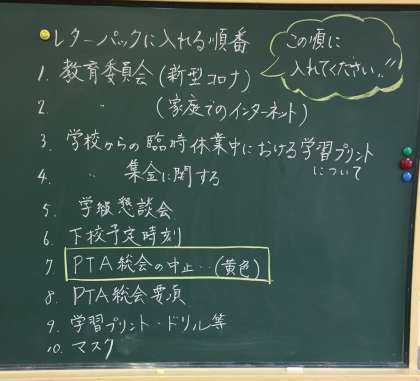 レターパックに入れる順番
この順に
入れてください!!
1. 教育委員会(新型コロナ)
2. 〃 (家庭でのインターネット)
3. 学校からの臨時休業中における学習プリント
について
4. 〃 集金に関する
5. 学級懇談会
6. 下校予定時刻
7. PTA総会の中止‥(黄色)
8. PTA総会要項
9. 学習プリント・ドリル等
10. マスク